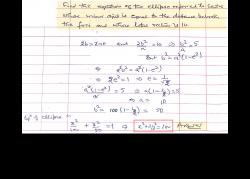 Find the equation of the ellipse referred to centre
whose minor axis is equal to the distance between
the foci and whose latus rectum is 10.
2b = 2ae and 2b²/a = 10 ⇒ b²/a = 5
But b² = a²(1-e²)
⇒ a²e² = a²(1-e²)
⇒ 2e² = 1 ⇒ e = 1/√2
a²(1-e²)/a = 5 ⇒ a(1-1/2) = 5
⇒ a = 10
b² = 100(1-1/2) = 50
Eqⁿ of ellipse
x²/100 + y²/50 = 1 ⇒ x²+2y²=100 Answer